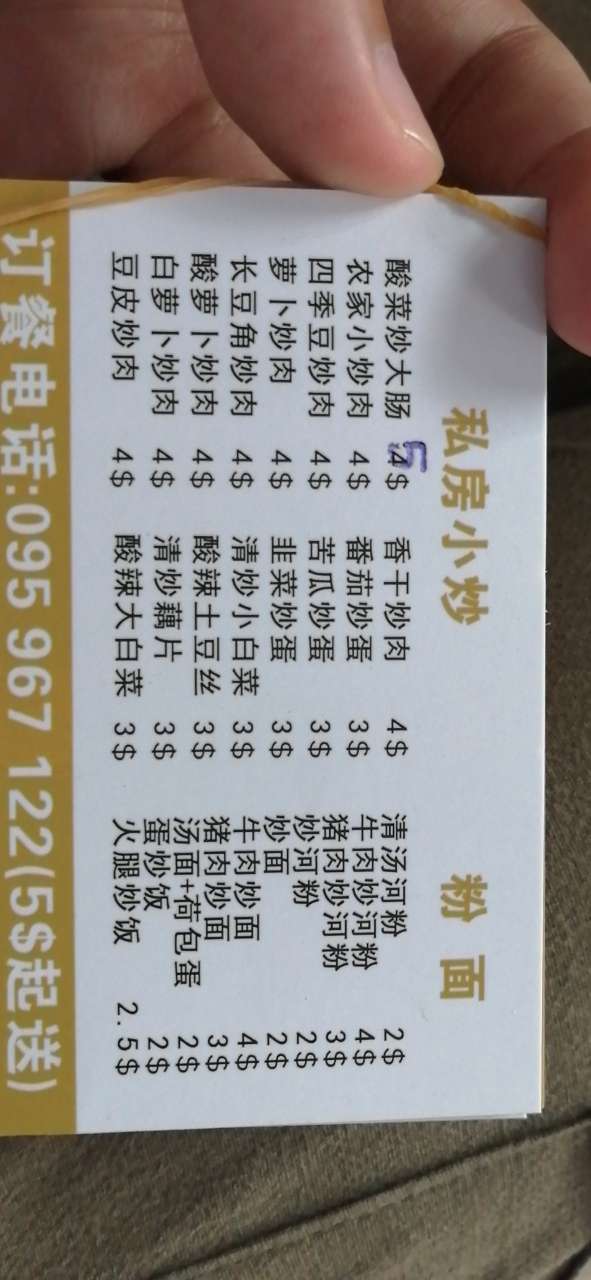 私房小炒
酸菜炒大肠 5$ 香干炒肉 4$
农家小炒肉 4$ 番茄炒蛋 3$
四季豆炒肉 4$ 苦瓜炒蛋 3$
萝卜炒肉 4$ 韭菜炒蛋 3$
长豆角炒肉 4$ 清炒小白菜 3$
酸萝卜炒肉 4$ 酸辣土豆丝 3$
白萝卜炒肉 4$ 清炒藕片 3$
豆皮炒肉 4$ 酸辣大白菜 3$
粉面
清汤河粉 2$
牛肉炒河粉 4$
猪肉炒河粉 3$
炒河粉 2$
炒面 2$
牛肉炒面 4$
猪肉炒面 3$
汤面+荷包蛋 2$
蛋炒饭 2$
火腿炒饭 2.5$
订餐电话:095 967 122(5$起送)